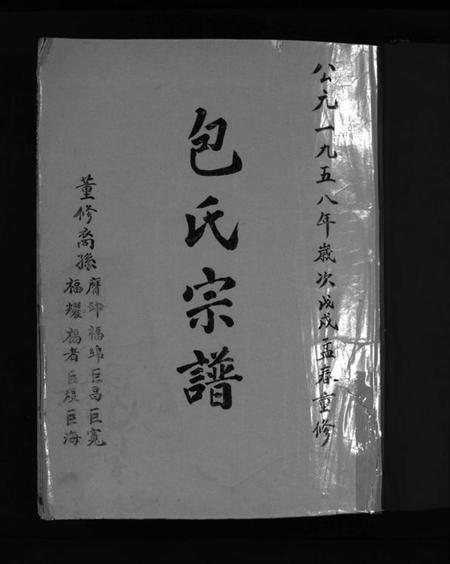 公元一九五八年歲次戊戌孟春重修
包氏宗譜
董修裔孫
福巨昌巨寬
福耀福者巨巨海